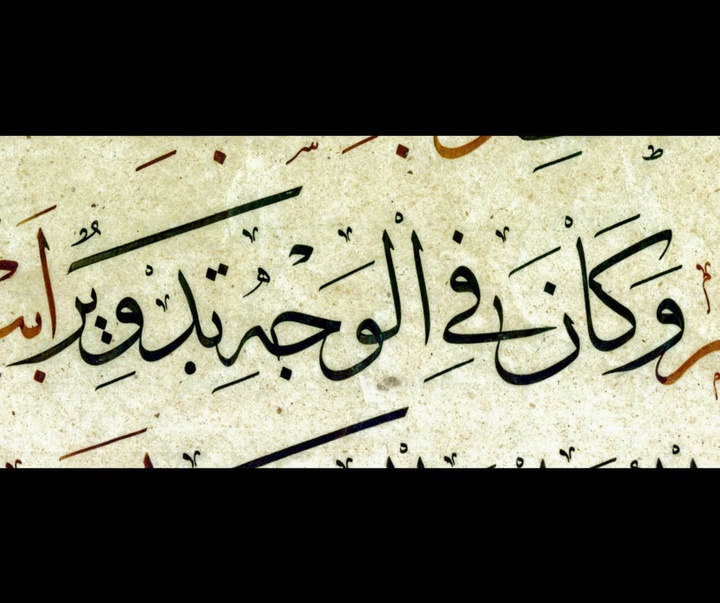 وَكَانَ فِي الْوَجْهِ تَدْوِيرٌ